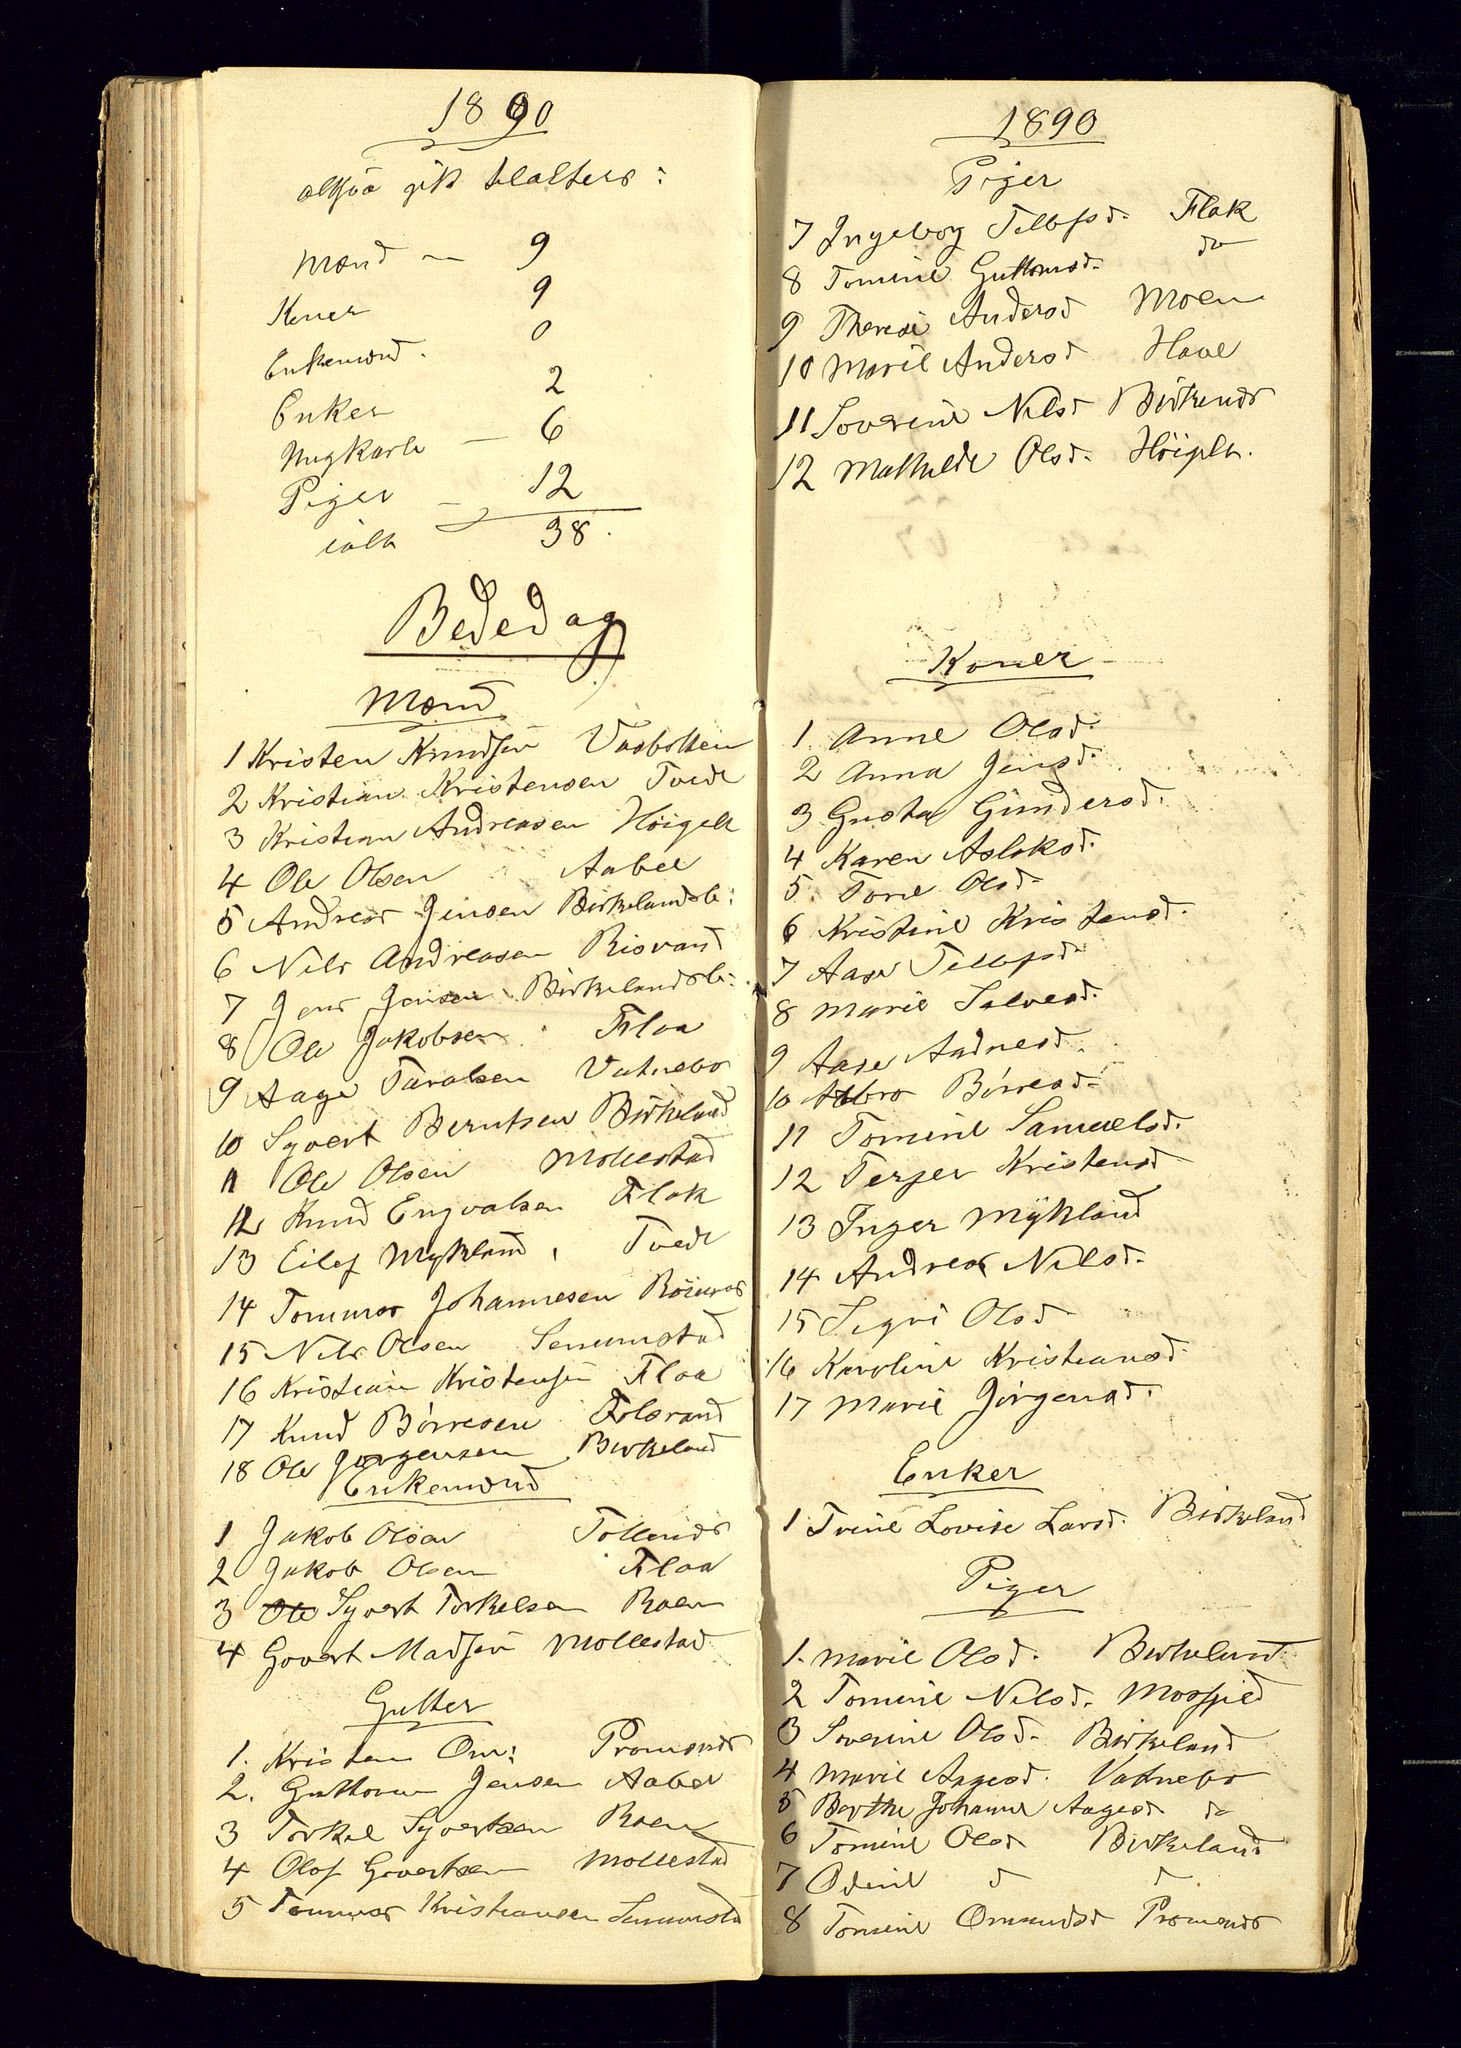 1890
altsaa gik til alters:
Mænd — 9
Koner 9
Enkemænd. 0
Enker 2
Ungkarle — 6
Piger — 12
ialt 38.
Bededag
Mænd
1 Kristen Knudsen Vasbotten
2 Kristian Kristensen Tvede
3 Kristian Andreasen Höigilt
4 Ole Olsen Aabel
5 Andreas Jensen Birkelandsb:
6 Nils Andreasen Risvand
7 Jens Jensen Birkelandsb:
8 Ole Jakobsen Flaa
9 Aage Taralsen Vatnebo
10 Syvert Berntsen Birkeland
11 Ole Olsen Mollestad
12 Knud Engvalsen Flak
13 Eilef Mykland Tvede
14 Tommas Johannesen
15 Nils Olsen Senumstad
16 Kristian Kristensen Flaa
17 Knud Börresen
18 Ole Jörgensen Birkeland
Enkemænd
1 Jakob Olsen
2 Jakob Olsen Flaa
3 Ole Syvert Torkelsen Roen
4 Govert Madsen Mollestad
Gutter
1. Kristen Om: Promenes
2. Guttorm Jensen Aabel
3 Torkel Syvertsen Roen
4 Olof Govertsen Mollestad
5 Tommas Kristiansen Senumsta
1890
Piger
7 Ingeborg Tellefsd. Flak
8 Tomine Guttormsd. do
9 Therese Andersd Moen
10 Marie Andersd Have
11 Soverine Nilsd
12 Mathilde Olsd. Höigilt.
Koner
1. Anne Olsd.
2 Anna Jensd.
3 Gusta Gundersd.
4 Karen Aslaksd.
5. Tone Olsd.
6 Kristine Kristensd.
7 Aase Tellefsd
8 Marie Salvesd.
9 Aase Aadnesd.
10 Börresd.
11 Tomine Samuelsd.
12 Terjer Kristensd
13 Inger Mykland
14 Andrea Nilsd.
15 Sigri Olsd
16 Karoline Kristiansd.
17 Marie Jörgensd.
Enker
1 Trine Lovise Larsd. Birkeland
Piger
1. Marie Olsd. Birkeland
2 Tomine Nilsd. Mosfjeld
3 Soverine Olsd. Birkeland
4 Marie Aagesd. Vatnebo
5 Berthe Johanne Aagesd do
6 Tomine Olsd Birkeland
7 Odine d d
8 Tomine Omundsd Promenes